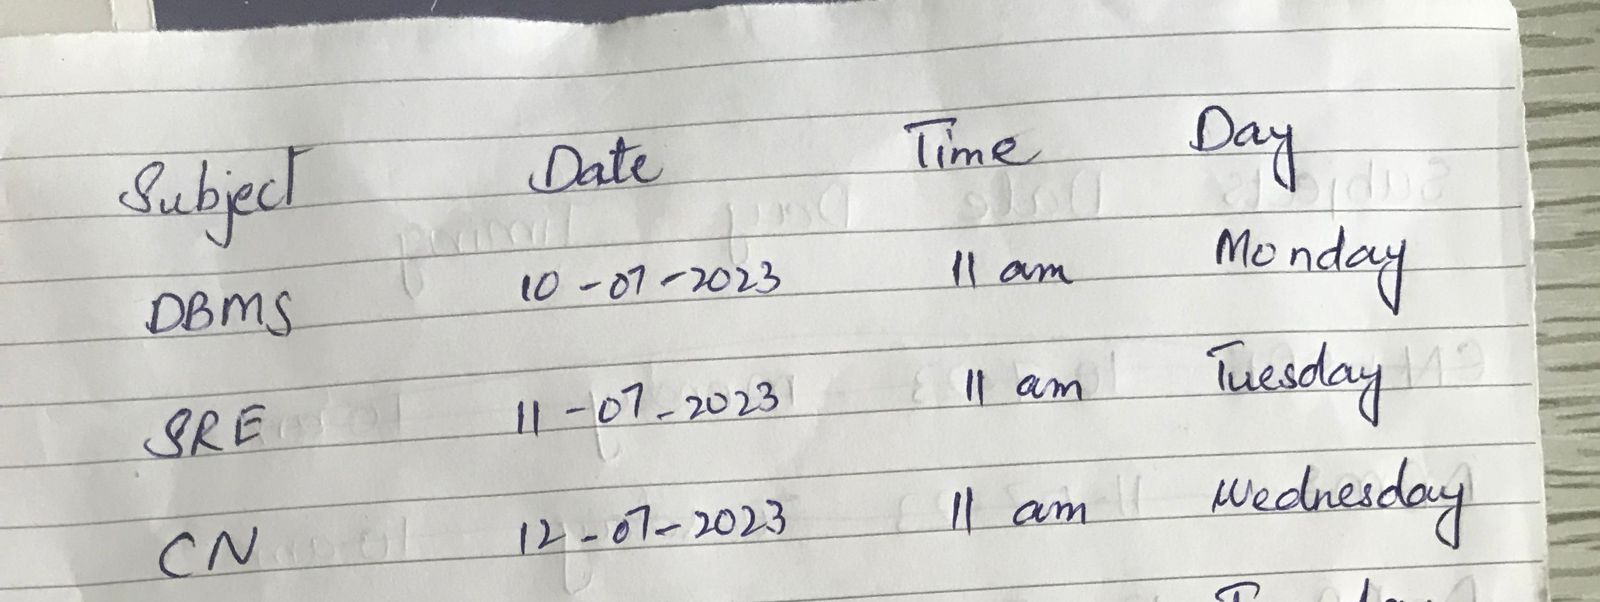 Subject Date Time Day
DBMS 10-07-2023 11 am Monday
SRE 11-07-2023 11 am Tuesday
CN 12-07-2023 11 am Wednesday